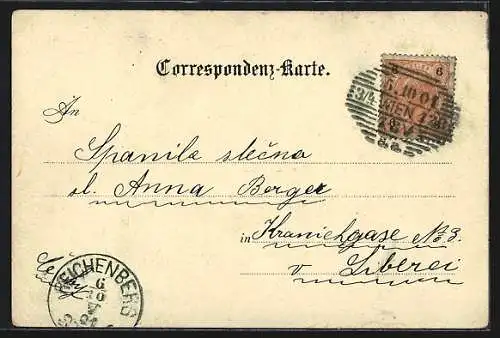 Correspondenz-Karte.
6
5.10.01
3/4 WIEN 1
An
Spanilá slečna
sl. Anna Berger
in Kranichgasse No 3.
v Liberci
REICHENBERG
6
10